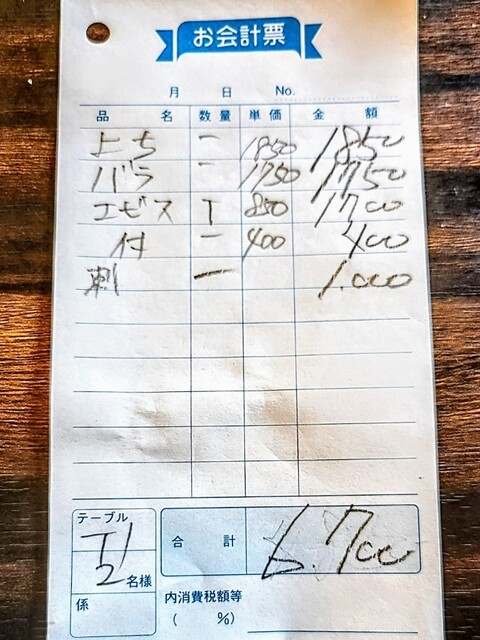 お会計票
月 日 No.
品名 数量 単価 金額
上ち 一 1850 1850
バラ 一 1750 1750
エビス T 850 1700
付 一 400 400
刺 一 1.000
テーブル T1
2名様
係
合計 6.700
内消費税額等
( %)